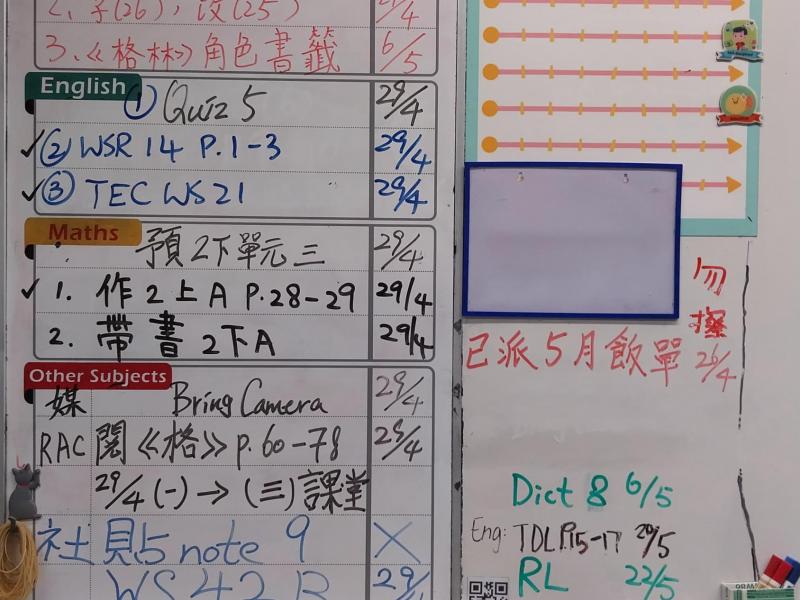 2. 字(26), 改(25)
3.《格林》角色書籤 6/5
English
① Quiz 5 29/4
✓② WSR 14 P.1-3 29/4
✓③ TEC WS 21 29/4
Maths
預2下單元三 29/4
✓ 1. 作2上A P.28-29 29/4
2. 帶書2下A 29/4
Other Subjects
媒 Bring Camera 29/4
RAC 閱《格》p.60-78 29/4
29/4 (一) → (三)課堂
note 9 X
WS 42 29/
勿擦
已派5月飯單 26/4
Dict 8 6/5
Eng: TDL P.15-17
RL 22/5